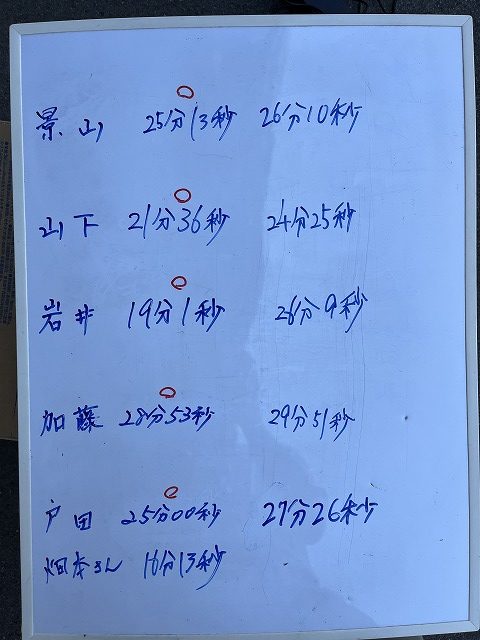 景山 25分13秒 26分10秒
山下 21分36秒 24分25秒
岩井 19分1秒 26分9秒
加藤 28分53秒 29分51秒
戸田 25分00秒 27分26秒
畑本さん 16分13秒